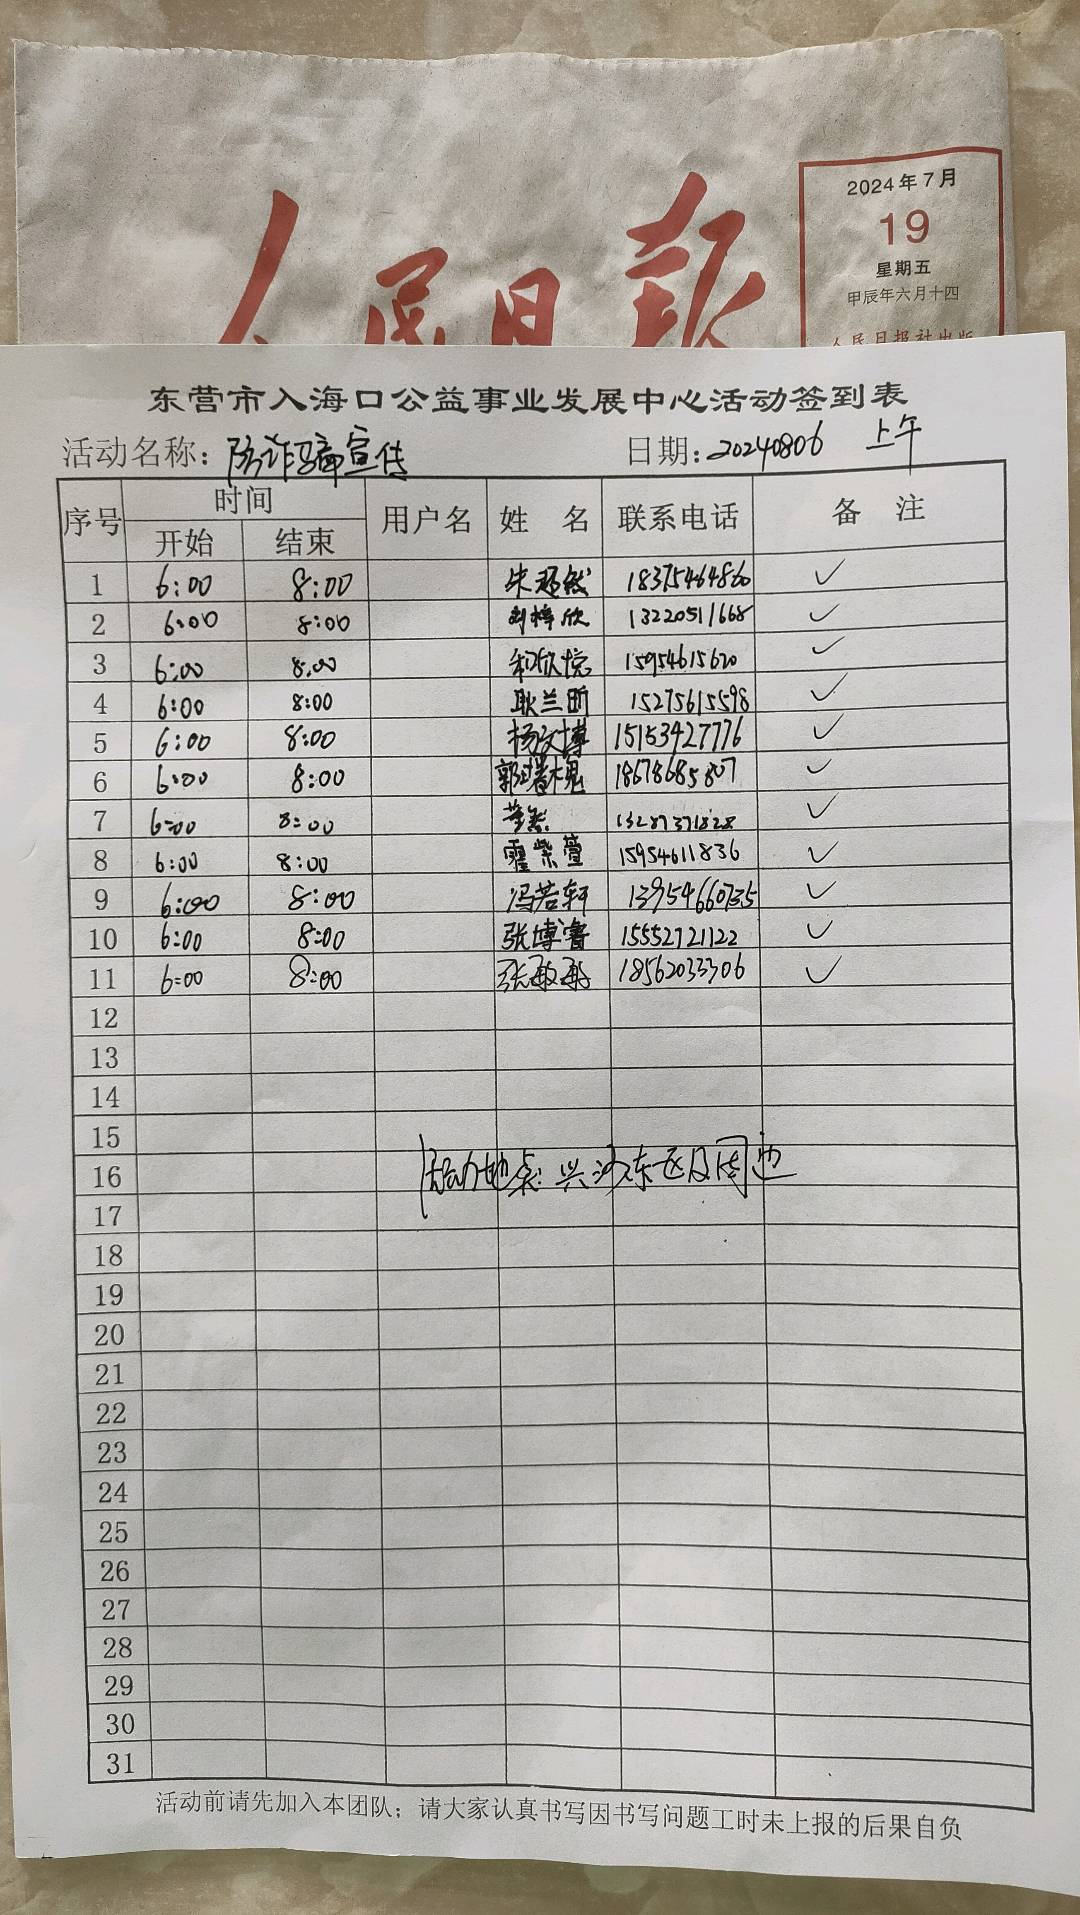 人民日报
2024年7月
19
星期五
甲辰年六月十四
人民日报社出版
东营市入海口公益事业发展中心活动签到表
活动名称：防诈骗宣传 日期：20240806 上午
序号 时间 用户名 姓 名 联系电话 备 注
开始 结束
1 6:00 8:00 朱超然 18375464860 ✓
2 6:00 8:00 刘梓欣 13220511668 ✓
3 6:00 8:00 和欣悦 15954615620 ✓
4 6:00 8:00 耿兰昕 15275615598 ✓
5 6:00 8:00 杨文博 15153427776 ✓
6 6:00 8:00 郭曙槐 18678685807 ✓
7 6:00 8:00 13287371828 ✓
8 6:00 8:00 霍紫萱 15954611836 ✓
9 6:00 8:00 冯若轩 13954660735 ✓
10 6:00 8:00 张博睿 15552721122 ✓
11 6:00 8:00 张敏敏 18562033306 ✓
12
13
14
15
16 活动地点：兴河东区及周边
17
18
19
20
21
22
23
24
25
26
27
28
29
30
31
活动前请先加入本团队；请大家认真书写因书写问题工时未上报的后果自负